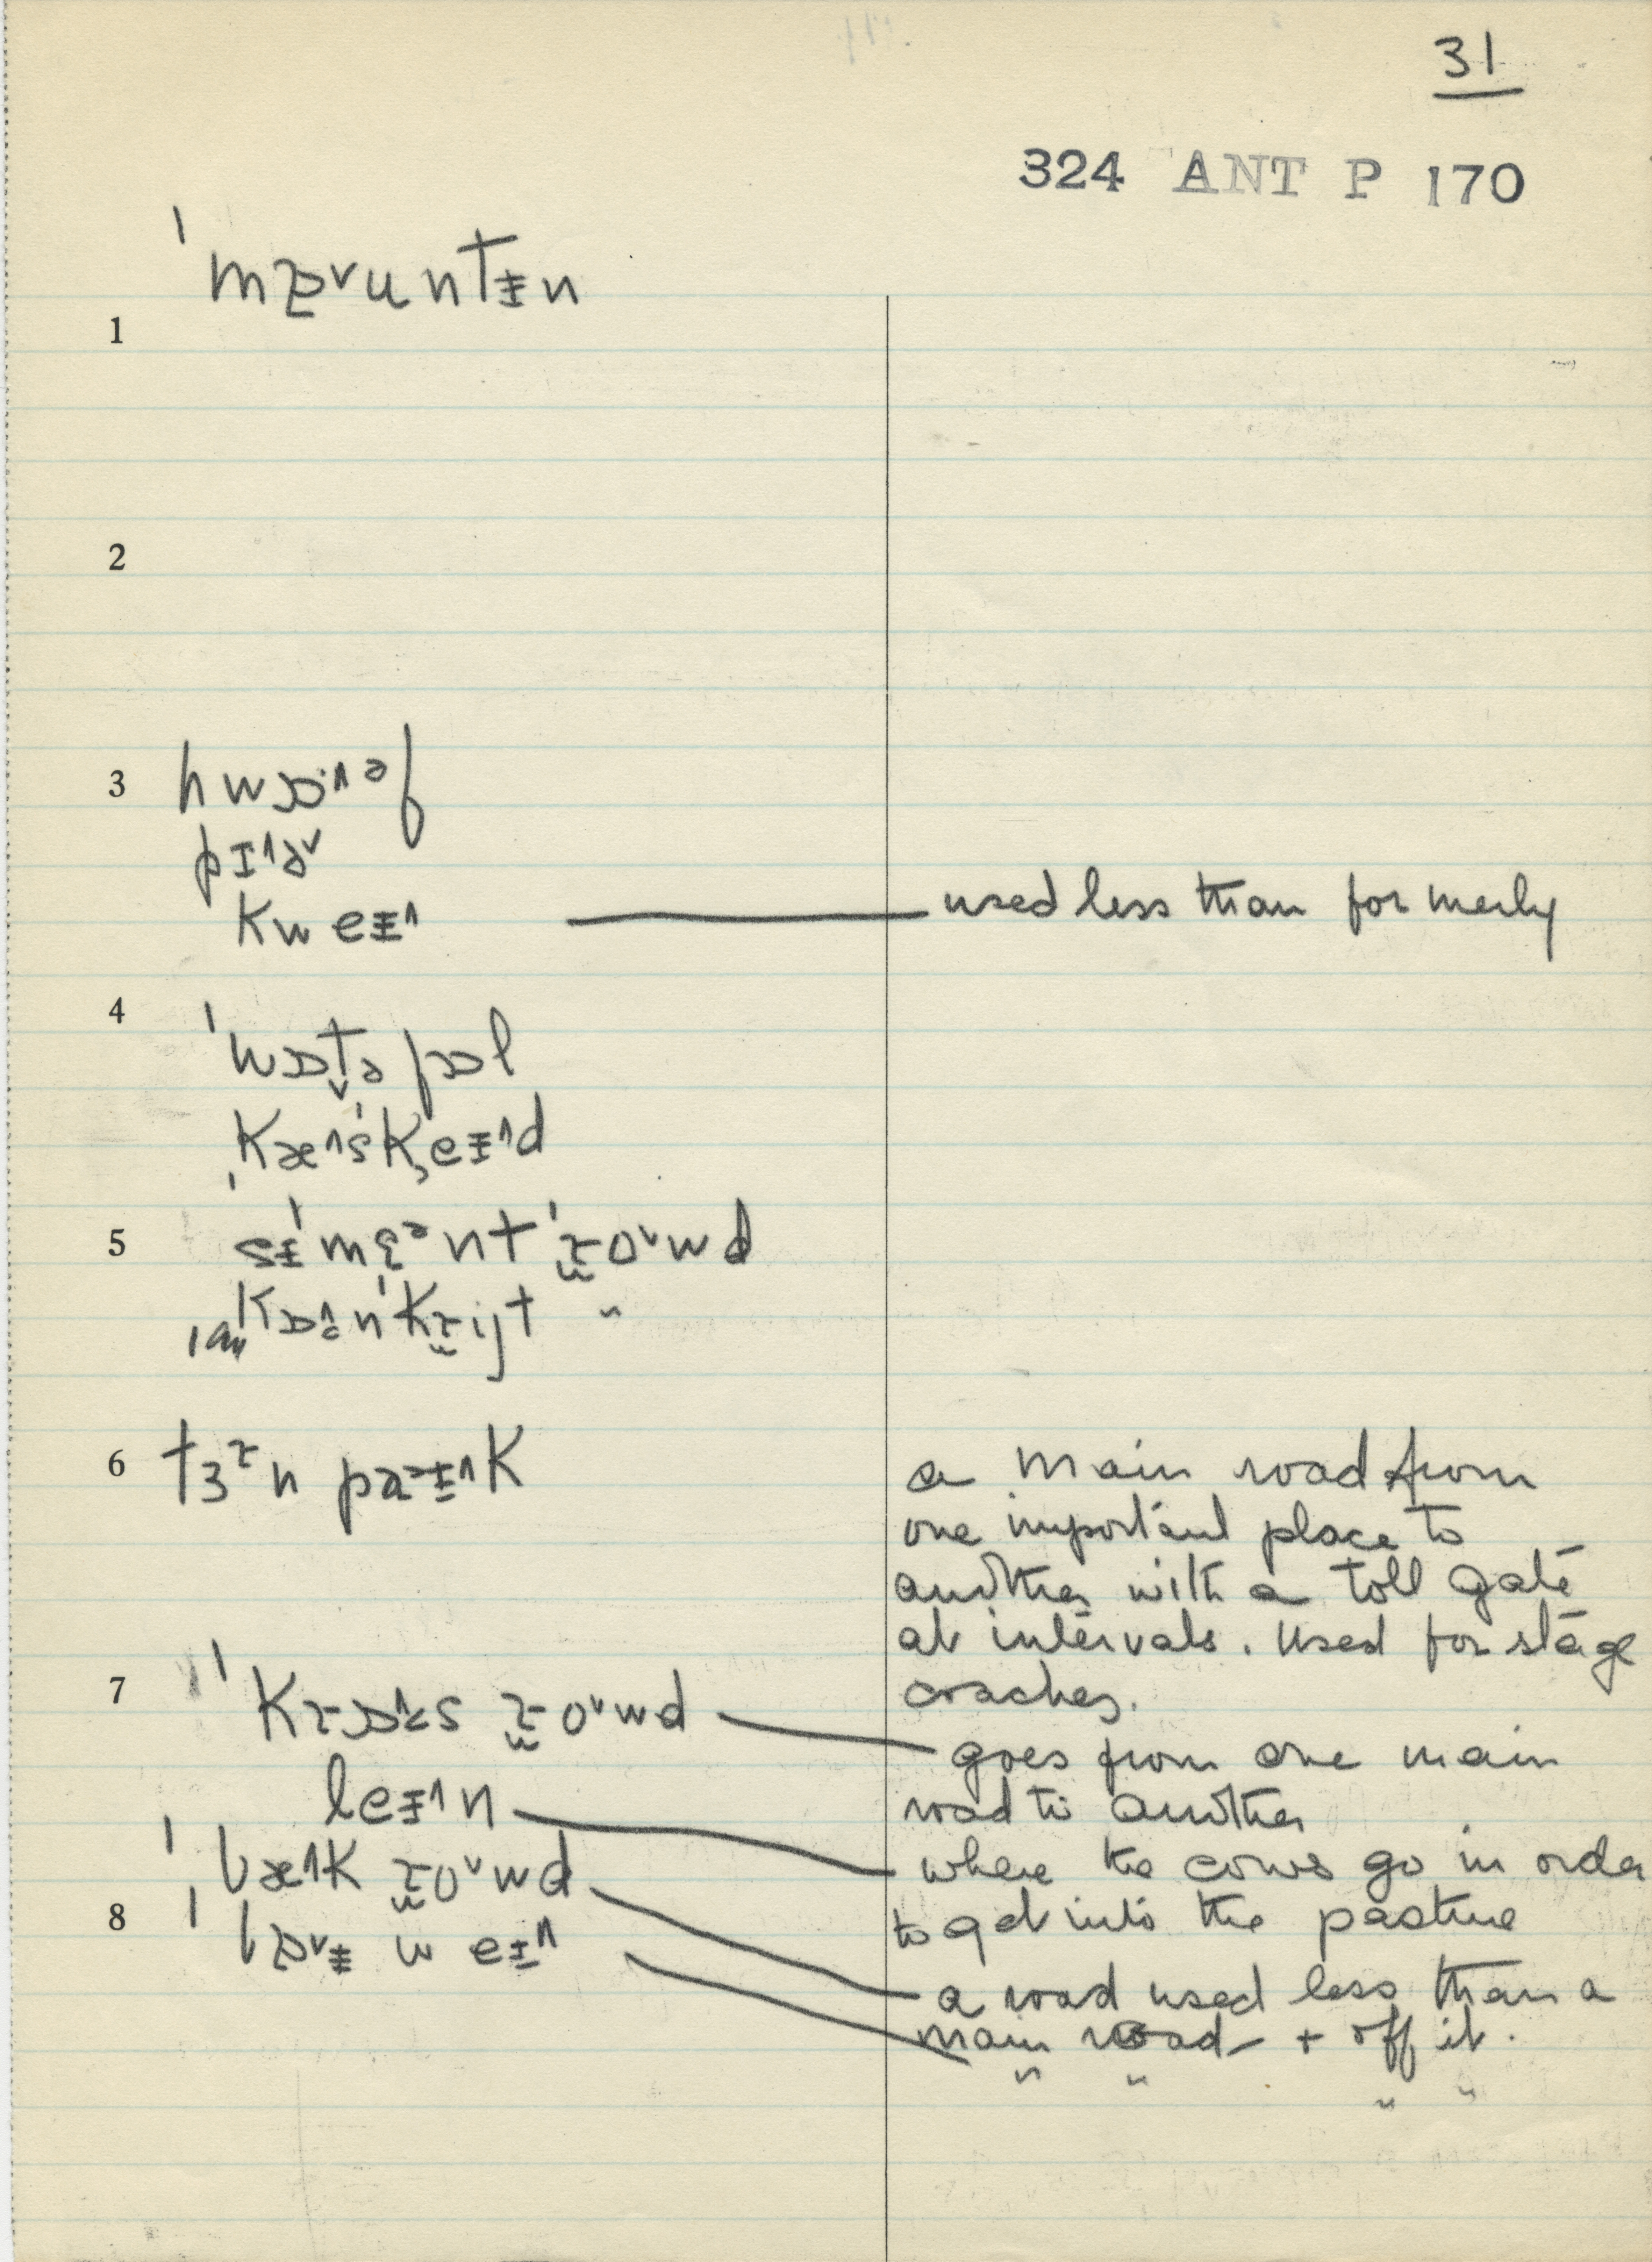 31
324 ANT P 170
ˈmɒ˅untɨn
1
2
3 hwɒ·˄əf
pɪ˄ə˅
kweɨ˄ used less than formerly
4
ˈwɒt̬əfɒl
ˌkæ˄sˈkeɨ˄d
5 sɨˈmɛᵊnt ˈɹo˅wd
ˈkɒ˄nˈkɹijt "
6 tɜɹn paɨ˄k a main road from
one important place to
another with a toll gate
at intervals. Used for stage
coaches.
7 ˈkɹɒ˄s ɹo˅wd goes from one main
road to another
leɨ˄n where the cows go in order
to get into the pasture
ˈbæ˄k ɹo˅wd a road used less than a
main road + off it.
8 ˈbɒ˅ɨ weɨ˄ " " " "